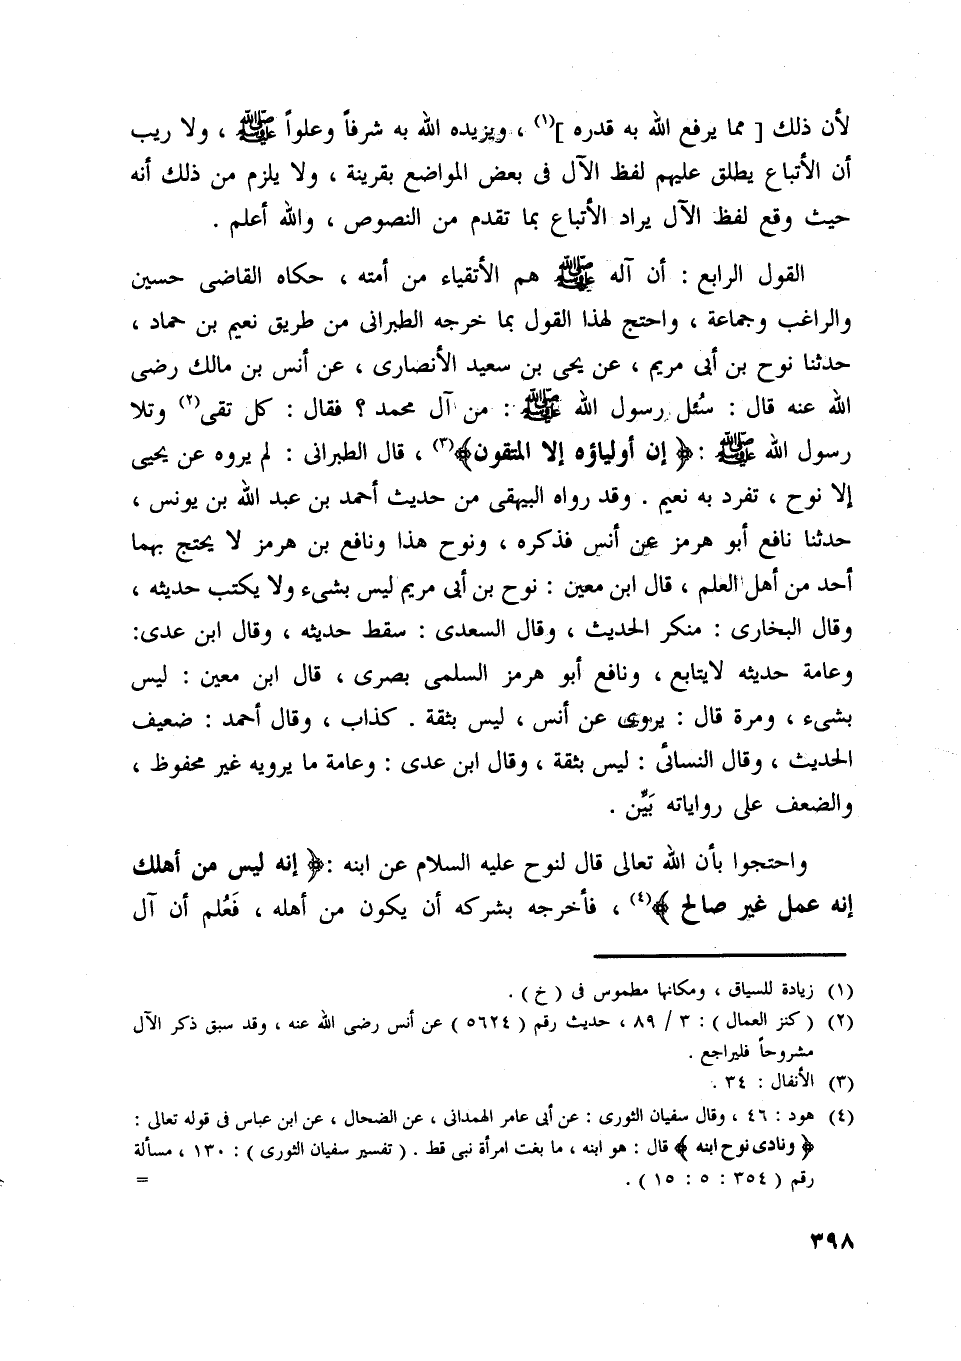 لأن ذلك [ مما يرفع الله به قدره ](١) ، ويزيده الله به شرفاً وعلواً ﷺ ، ولا ريب
أن الأتباع يطلق عليهم لفظ الآل فى بعض المواضع بقرينة ، ولا يلزم من ذلك أنه
حيث وقع لفظ الآل يراد الأتباع بما تقدم من النصوص ، والله أعلم .
القول الرابع : أن آله ﷺ هم الأتقياء من أمته ، حكاه القاضى حسين
والراغب وجماعة ، واحتج لهذا القول بما خرجه الطبرانى من طريق نعيم بن حماد ،
حدثنا نوح بن أبى مريم ، عن يحى بن سعيد الأنصارى ، عن أنس بن مالك رضى
الله عنه قال : سُئل رسول الله ﷺ : من آل محمد ؟ فقال : كل تقى(٢) وتلا
رسول الله ﷺ :﴿ إن أولياؤه إلا المتقون﴾(٣) ، قال الطبرانى : لم يروه عن يحيى
إلا نوح ، تفرد به نعيم . وقد رواه البيهقى من حديث أحمد بن عبد الله بن يونس ،
حدثنا نافع أبو هرمز عن أنس فذكره ، ونوح هذا ونافع بن هرمز لا يحتج بهما
أحد من أهل العلم ، قال ابن معين : نوح بن أبى مريم ليس بشىء ولا يكتب حديثه ،
وقال البخارى : منكر الحديث ، وقال السعدى : سقط حديثه ، وقال ابن عدى:
وعامة حديثه لايتابع ، ونافع أبو هرمز السلمى بصرى ، قال ابن معين : ليس
بشىء ، ومرة قال : يروى عن أنس ، ليس بثقة . كذاب ، وقال أحمد : ضعيف
الحديث ، وقال النسائى : ليس بثقة ، وقال ابن عدى : وعامة ما يرويه غير محفوظ ،
والضعف على رواياته بَيِّن .
واحتجوا بأن الله تعالى قال لنوح عليه السلام عن ابنه :﴿ إنه ليس من أهلك
إنه عمل غير صالح ﴾(٤) ، فأخرجه بشركه أن يكون من أهله ، فَعُلم أن آل
(١) زيادة للسياق ، ومكانها مطموس فى ( خ ) .
(٢) ( كنز العمال ) : ٣ / ٨٩ ، حديث رقم ( ٥٦٢٤ ) عن أنس رضى الله عنه ، وقد سبق ذكر الآل
مشروحاً فليراجع .
(٣) الأنفال : ٣٤ .
(٤) هود : ٤٦ ، وقال سفيان الثورى : عن أبى عامر الهمدانى ، عن الضحال ، عن ابن عباس فى قوله تعالى :
﴿ ونادى نوح ابنه ﴾ قال : هو ابنه ، ما بغت امرأة نبى قط . ( تفسير سفيان الثورى ) : ١٣٠ ، مسألة
رقم ( ٣٥٤ : ٥ : ١٥ ) . =
٣٩٨